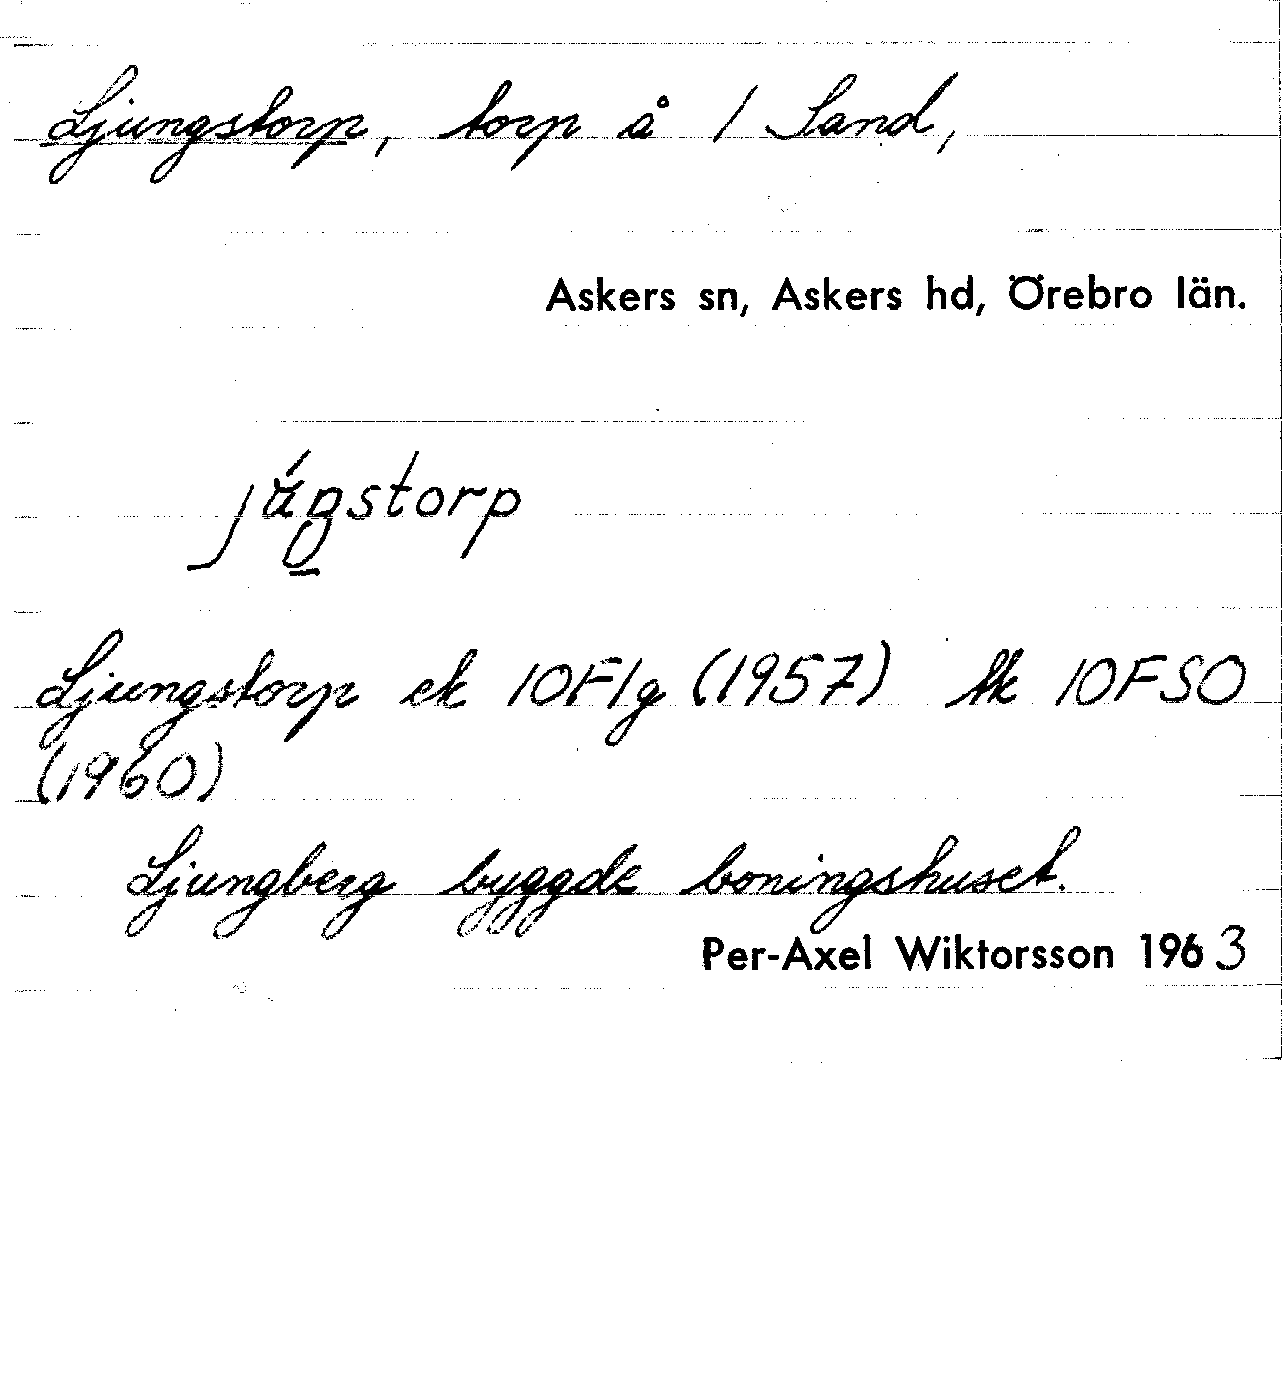 Ljungstorp, torp å / Sand,
Askers sn, Askers hd, Örebro län.
Ljungstorp ek 10F1g (1957) tk 10FSO
(1960)
Ljungberg byggde boningshuset.
Per-Axel Wiktorsson 1963